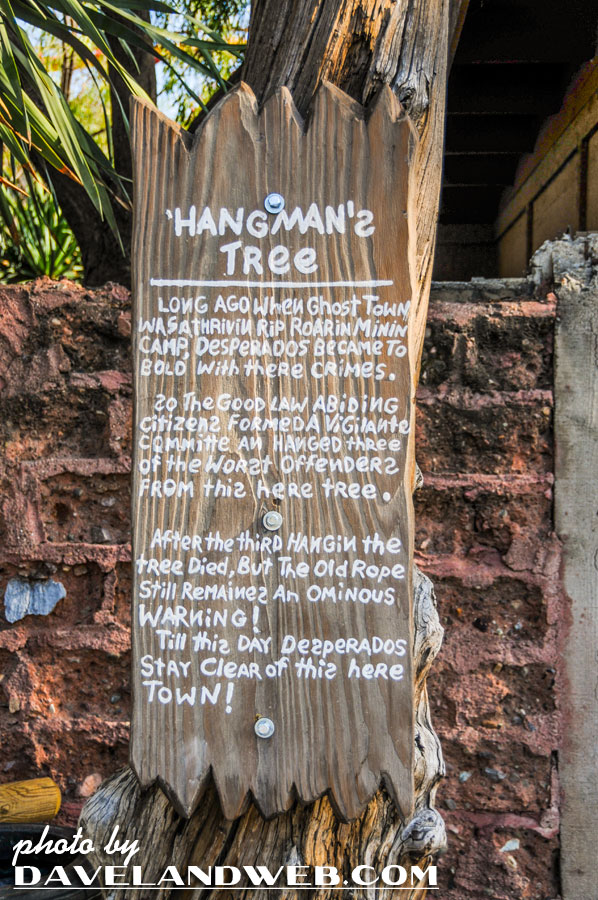 'HANGMAN'S
TREE
LONG AGO WHEN GHOST TOWN
WAS A THRIVIN RIP ROARIN MININ
CAMP, DESPERADOS BECAME TO
BOLD WITH THERE CRIMES.
SO THE GOOD LAW ABIDING
CITIZENS FORMED A VIGILANTE
COMMITTE AN HANGED THREE
OF THE WORST OFFENDERS
FROM THIS HERE TREE.
AFTER THE THIRD HANGIN THE
TREE DIED, BUT THE OLD ROPE
STILL REMAINES AN OMINOUS
WARNING!
TILL THIS DAY DESPERADOS
STAY CLEAR OF THIS HERE
TOWN!
photo by
DAVELANDWEB.COM